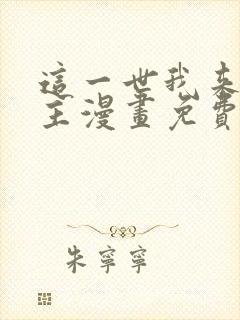 這一世我來
主漫畫免費
朱寧寧